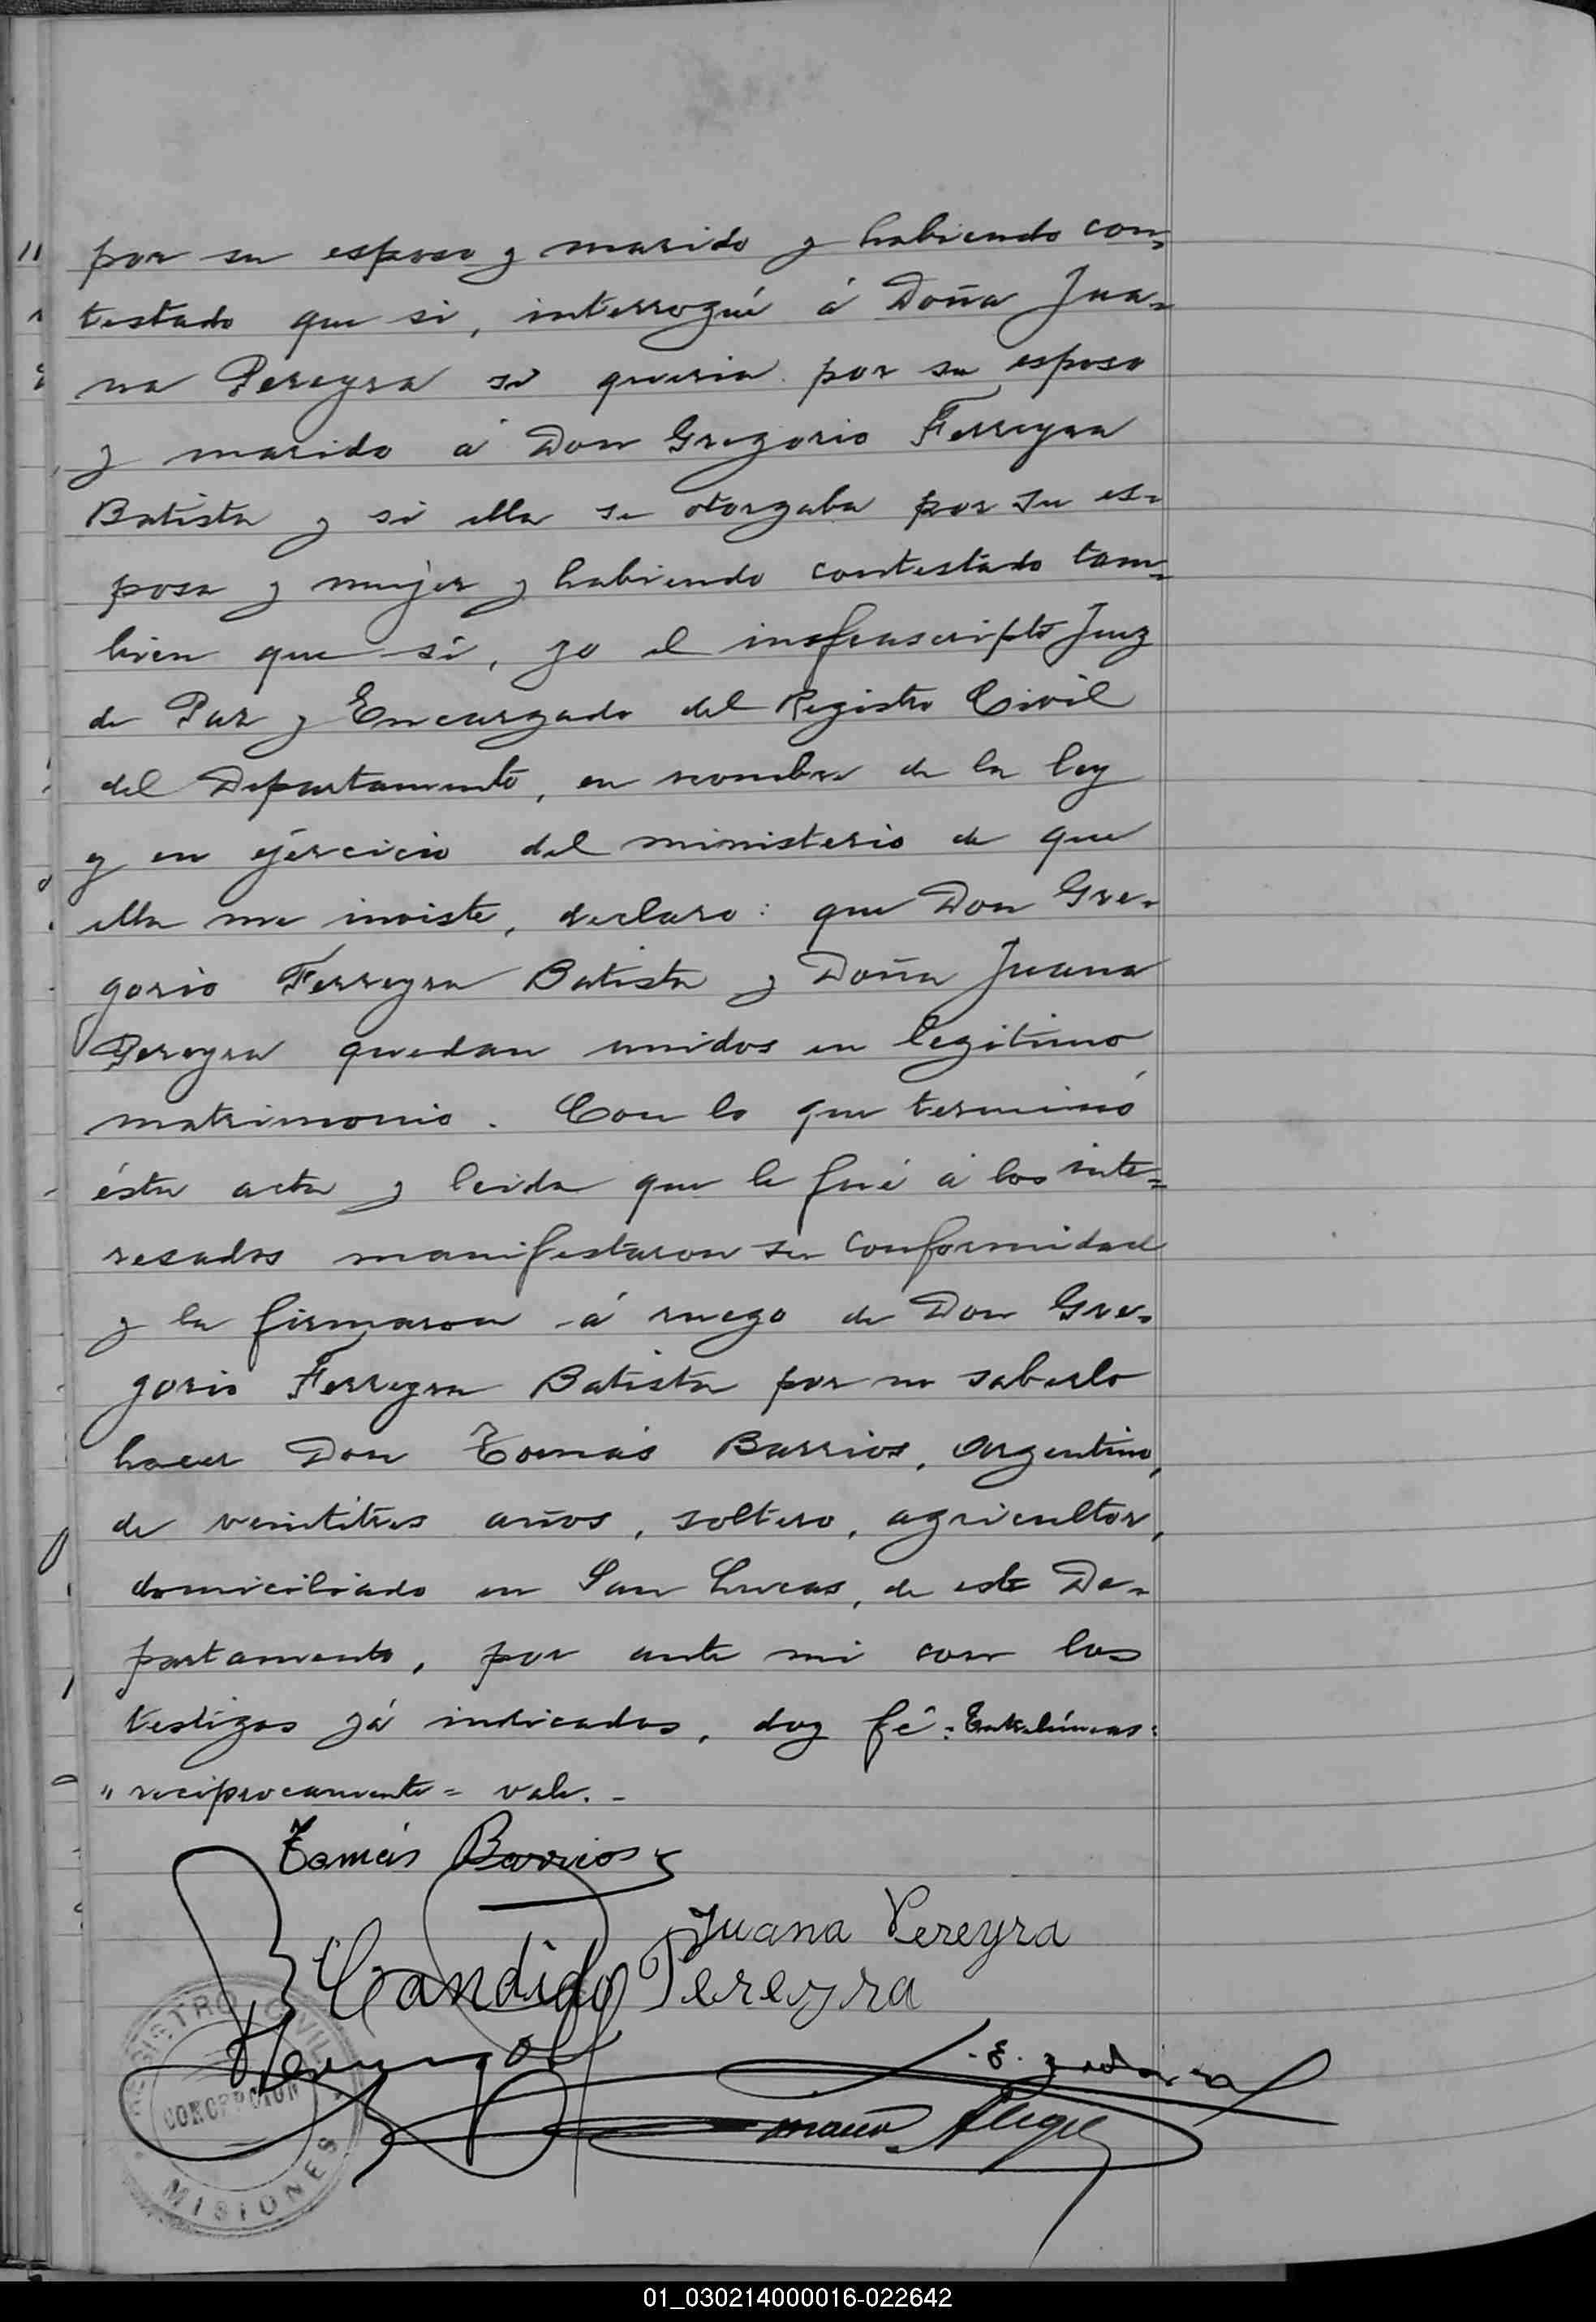 por su esposo y marido y habiendo con=
testado que si, interrogué á Doña Jua=
na Pereyra si queria por su esposo
y marido á Don Gregorio Ferreyra
Batista y si ella se otorgaba por su es=
posa y mujer y habiendo contestado tam=
bien que si, yo el infrascripto Juez
de Paz y Encargado del Registro Civil
del Departamento, en nombre de la ley
y en ejercicio del ministerio de que
ella me inviste, declaro: que Don Gre=
gorio Ferreyra Batista y Doña Juana
Pereyra quedan unidos en legitimo
matrimonio. Con lo que terminó
ésta acta y leida que le fué á los inte=
resados manifestaron su conformidad
y la firmaron á ruego de Don Gre=
gorio Ferreyra Batista por no saberlo
hacer Don Tomás Barrios, argentino,
de veintitres años, soltero, agricultor,
domiciliado en San Lucas, de este De=
partamento, por ante mi con los
testigos yá indicados, doy fé. Entrelíneas:
"reciprocamente= vale.-
Tomás Barrios
Juana Pereyra
Candido Pereyra
REGISTRO CIVIL
CONCEPCION
MISIONES
01_030214000016-022642